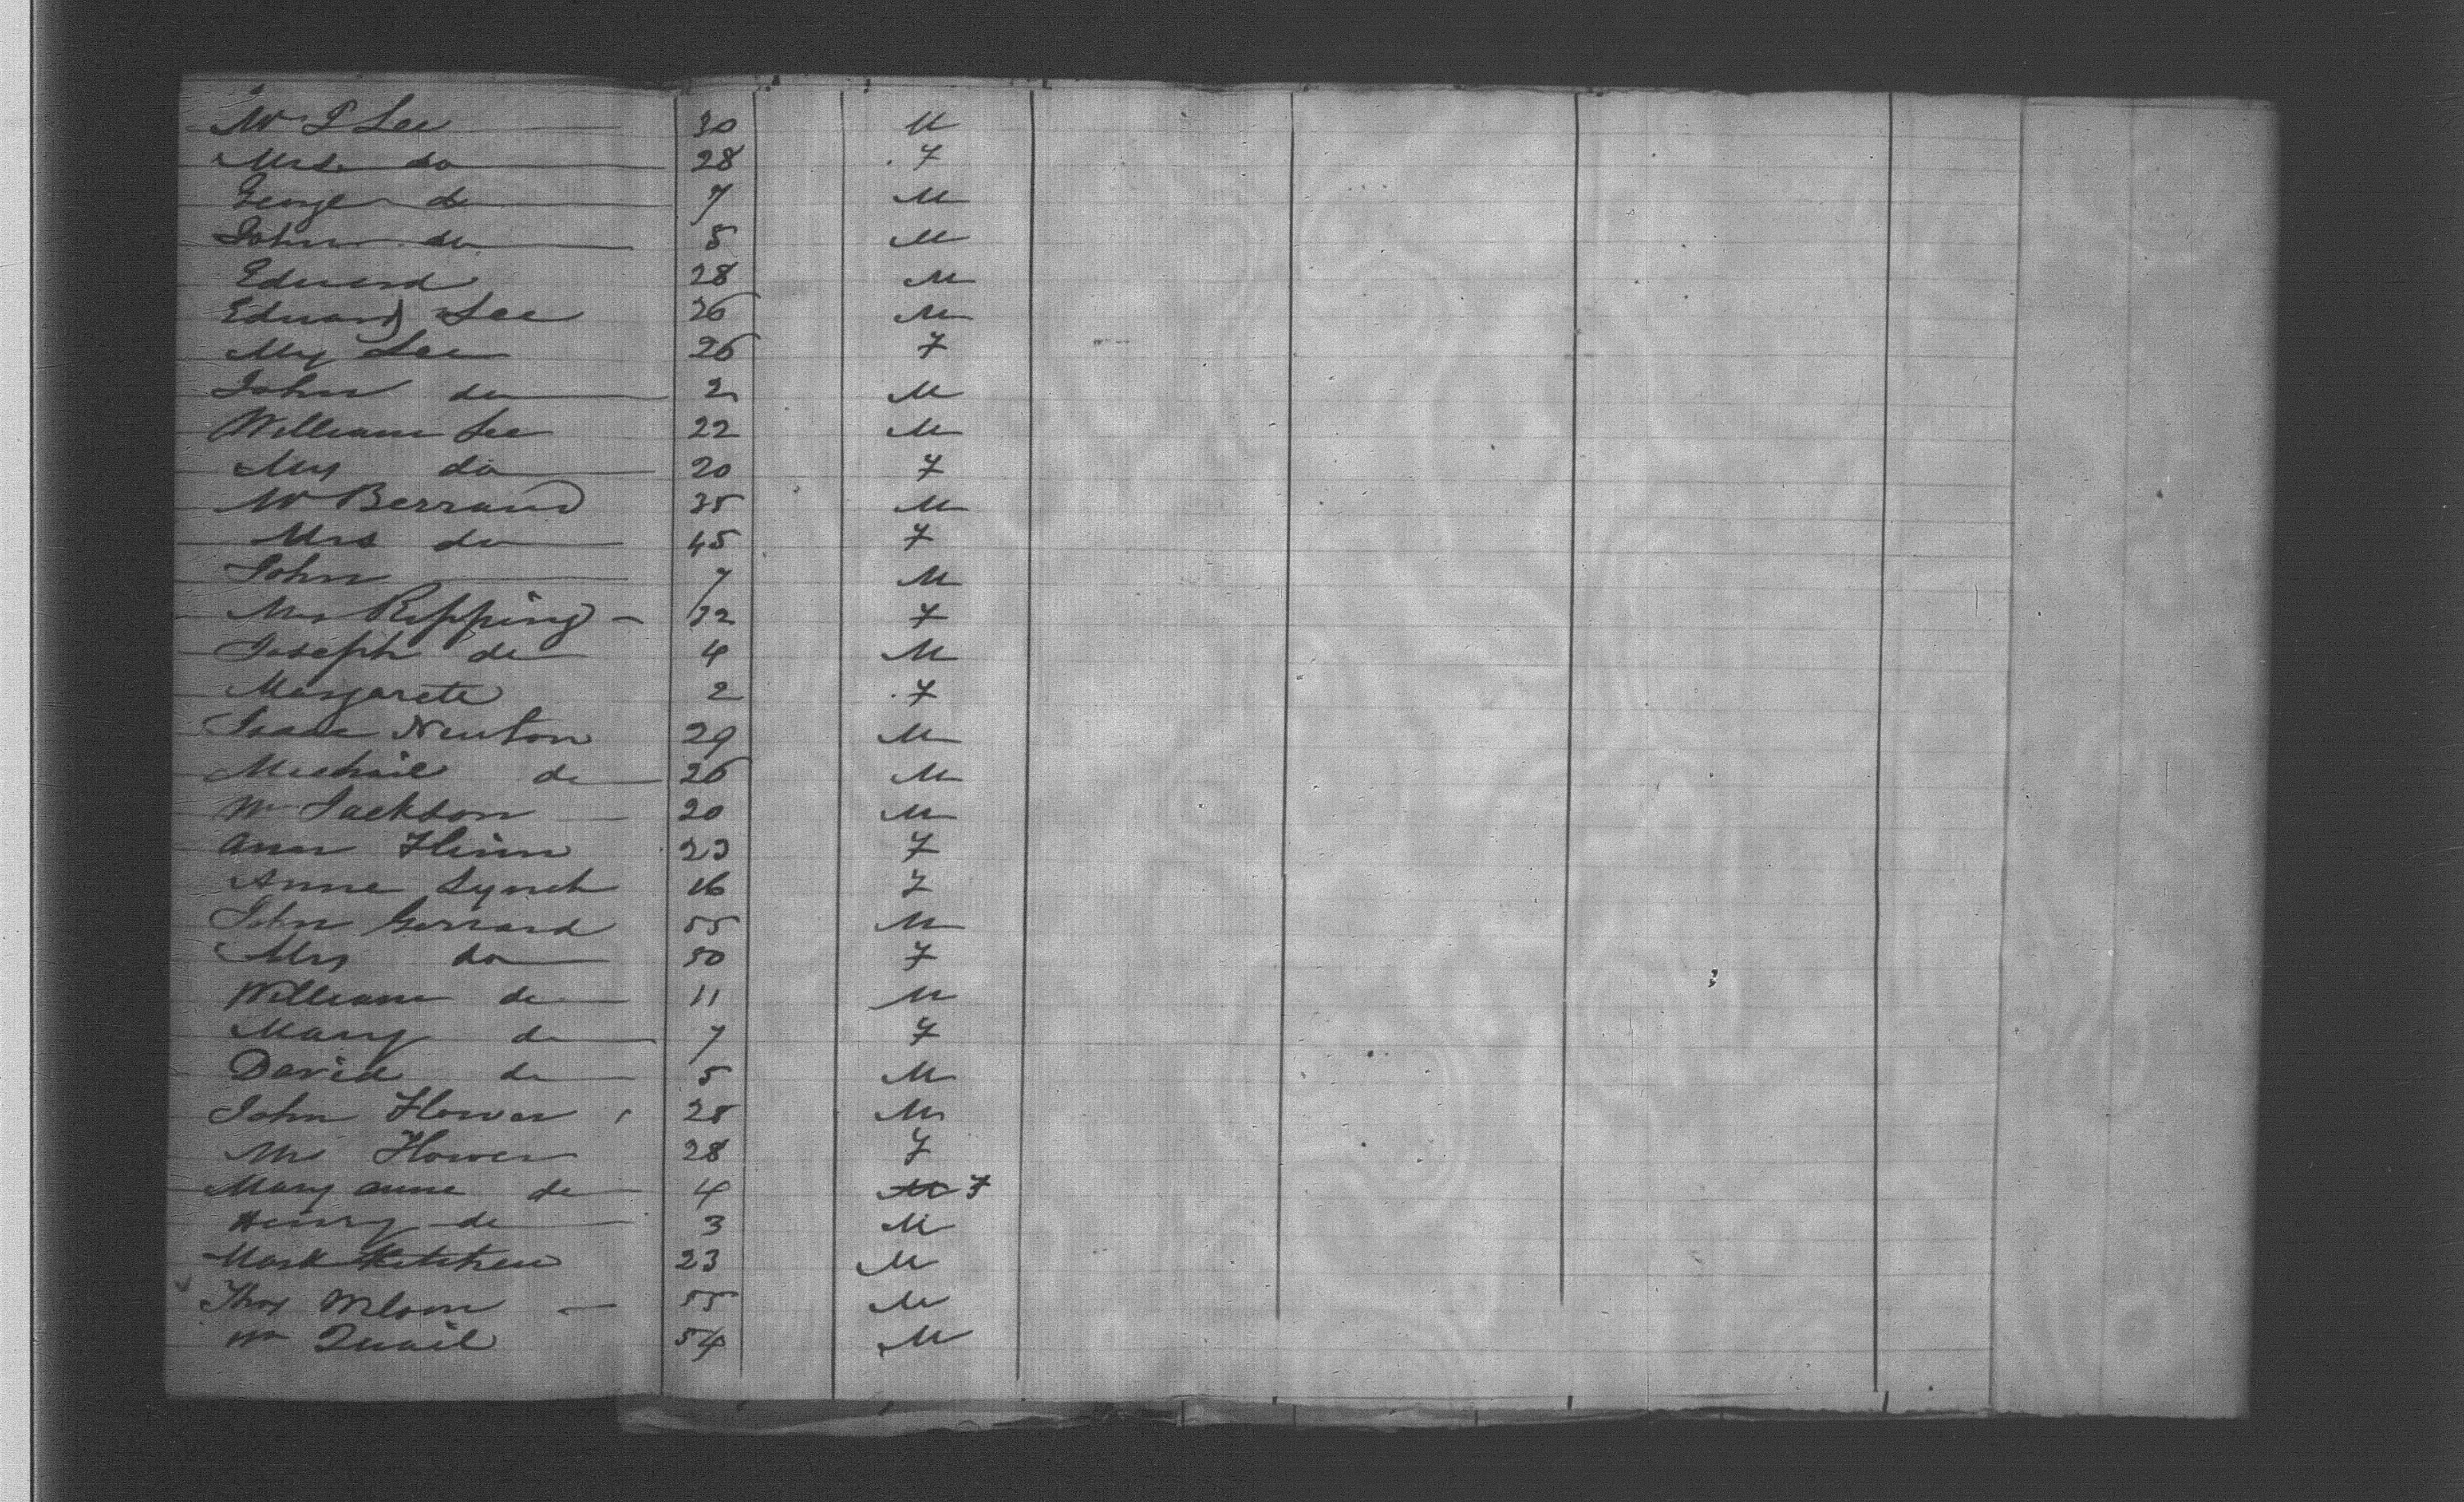 W P Lee 30 M
Mrs do 28 F
George do 7 M
John do 5 M
Edward 28 M
Edward Lee 26 M
Mrs Lee 26 F
John do 2 M
William Lee 22 M
Mrs do 20 F
W Berrand 35 M
Mrs do 45 F
John 7 M
Mrs Ripping 32 F
Joseph do 4 M
Margarete 2 F
Isaac Newton 29 M
Michail do 26 M
Wm Jackson 20 M
Ann Flinn 23 F
Anne Lynch 16 F
John Gerrard 55 M
Mrs do 50 F
William do 11 M
Mary do 7 F
David do 5 M
John Hower 28 M
Mrs Hower 28 F
Mary Anne do 4 M F
Henry do 3 M
Mark Kitchen 23 M
Thos 55 M
Wm Quail 54 M